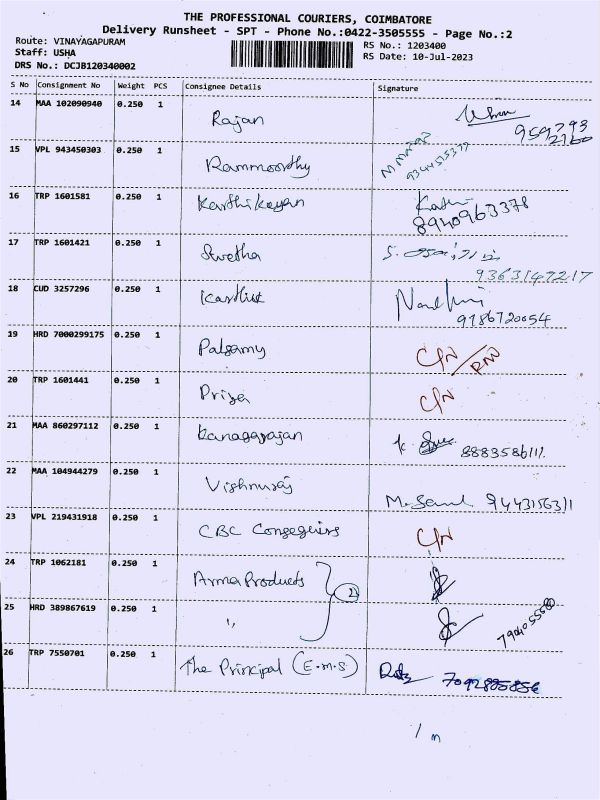 THE PROFESSIONAL COURIERS, COIMBATORE
Delivery Runsheet - SPT - Phone No.:0422-3505555 - Page No.:2
Route: VINAYAGAPURAM
Staff: USHA
DRS No.: DCJB120340002
RS No.: 1203400
RS Date: 10-Jul-2023
S No Consignment No Weight PCS Consignee Details Signature
14 MAA 102090940 0.250 1 Rajan
15 VPL 943450303 0.250 1 Rammoorthy
16 TRP 1601581 0.250 1 Karthikayan
8940963378
17 TRP 1601421 0.250 1 Swetha
9363147217
18 CUD 3257296 0.250 1
9786720054
19 HRD 7000299175 0.250 1 Palsamy C/N
20 TRP 1601441 0.250 1 Priya C/N
21 MAA 860297112 0.250 1 Kanagarajan
22 MAA 104944279 0.250 1 Vishnuraj
9443156311
23 VPL 219431918 0.250 1 CBC C/N
24 TRP 1062181 0.250 1 Arma Products 2
25 HRD 389867619 0.250 1 "
26 TRP 7550701 0.250 1 The Principal (E.M.S)